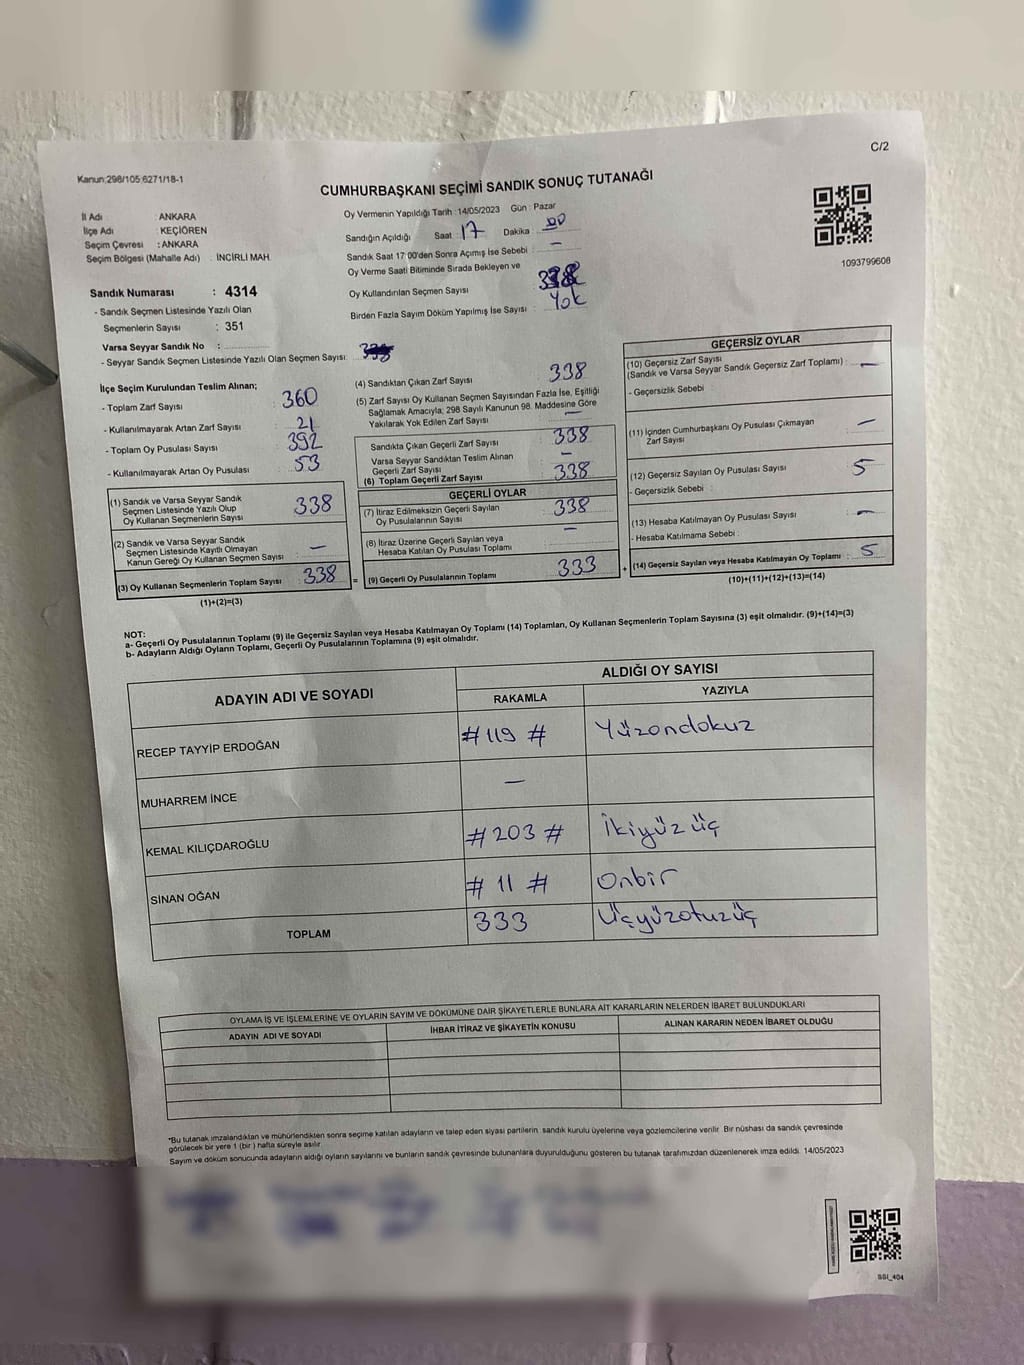 C/2
Kanun:298/105 6271/18-1
CUMHURBAŞKANI SEÇİMİ SANDIK SONUÇ TUTANAĞI
1093799608
İl Adı : ANKARA
İlçe Adı : KEÇİÖREN
Seçim Çevresi : ANKARA
Seçim Bölgesi (Mahalle Adı) : İNCİRLİ MAH.
Sandık Numarası : 4314
- Sandık Seçmen Listesinde Yazılı Olan
Seçmenlerin Sayısı : 351
Varsa Seyyar Sandık No :
- Seyyar Sandık Seçmen Listesinde Yazılı Olan Seçmen Sayısı:
Oy Vermenin Yapıldığı Tarih :14/05/2023 Gün : Pazar
Sandığın Açıldığı Saat : 17 Dakika : 00
Sandık Saat 17 00'den Sonra Açımış İse Sebebi : —
Oy Verme Saati Bitiminde Sırada Bekleyen ve
Oy Kullandırılan Seçmen Sayısı
Birden Fazla Sayım Döküm Yapılmış İse Sayısı : Yok
İlçe Seçim Kurulundan Teslim Alınan;
- Toplam Zarf Sayısı : 360
- Kullanılmayarak Artan Zarf Sayısı : 21
- Toplam Oy Pusulası Sayısı : 392
- Kullanılmayarak Artan Oy Pusulası : 53
(1) Sandık ve Varsa Seyyar Sandık
Seçmen Listesinde Yazılı Olup
Oy Kullanan Seçmenlerin Sayısı 338
(2) Sandık ve Varsa Seyyar Sandık
Seçmen Listesinde Kayıtlı Olmayan
Kanun Gereği Oy Kullanan Seçmen Sayısı : —
(3) Oy Kullanan Seçmenlerin Toplam Sayısı : 338
(1)+(2)=(3)
(4) Sandıktan Çıkan Zarf Sayısı : 338
(5) Zarf Sayısı Oy Kullanan Seçmen Sayısından Fazla İse, Eşitliği
Sağlamak Amacıyla; 298 Sayılı Kanunun 98. Maddesine Göre
Yakılarak Yok Edilen Zarf Sayısı : —
Sandıkta Çıkan Geçerli Zarf Sayısı : 338
Varsa Seyyar Sandıktan Teslim Alınan
Geçerli Zarf Sayısı : —
(6) Toplam Geçerli Zarf Sayısı : 338
GEÇERLİ OYLAR
(7) İtiraz Edilmeksizin Geçerli Sayılan
Oy Pusulalarının Sayısı : 338
(8) İtiraz Üzerine Geçerli Sayılan veya
Hesaba Katılan Oy Pusulası Toplamı : —
= (9) Geçerli Oy Pusulalarının Toplamı : 333
GEÇERSİZ OYLAR
(10) Geçersiz Zarf Sayısı
(Sandık ve Varsa Seyyar Sandık Geçersiz Zarf Toplamı) : —
- Geçersizlik Sebebi :
(11) İçinden Cumhurbaşkanı Oy Pusulası Çıkmayan
Zarf Sayısı : —
(12) Geçersiz Sayılan Oy Pusulası Sayısı : 5
- Geçersizlik Sebebi :
(13) Hesaba Katılmayan Oy Pusulası Sayısı : —
- Hesaba Katılmama Sebebi :
+ (14) Geçersiz Sayılan veya Hesaba Katılmayan Oy Toplamı : 5
(10)+(11)+(12)+(13)=(14)
NOT:
a- Geçerli Oy Pusulalarının Toplamı (9) ile Geçersiz Sayılan veya Hesaba Katılmayan Oy Toplamı (14) Toplamları, Oy Kullanan Seçmenlerin Toplam Sayısına (3) eşit olmalıdır. (9)+(14)=(3)
b- Adayların Aldığı Oyların Toplamı, Geçerli Oy Pusulalarının Toplamına (9) eşit olmalıdır.
ADAYIN ADI VE SOYADI
ALDIĞI OY SAYISI
RAKAMLA YAZIYLA
RECEP TAYYİP ERDOĞAN # 119 # Yüzondokuz
MUHARREM İNCE —
KEMAL KILIÇDAROĞLU # 203 # İkiyüzüç
SİNAN OĞAN # 11 # Onbir
TOPLAM 333 Üçyüzotuzüç
OYLAMA İŞ VE İŞLEMLERİNE VE OYLARIN SAYIM VE DÖKÜMÜNE DAİR ŞİKAYETLERLE BUNLARA AİT KARARLARIN NELERDEN İBARET BULUNDUKLARI
ADAYIN ADI VE SOYADI İHBAR İTİRAZ VE ŞİKAYETİN KONUSU ALINAN KARARIN NEDEN İBARET OLDUĞU
*Bu tutanak imzalandıktan ve mühürlendikten sonra seçime katılan adayların ve talep eden siyasi partilerin sandık kurulu üyelerine veya gözlemcilerine verilir. Bir nüshası da sandık çevresinde
görülecek bir yere 1 (bir ) hafta süreyle asılır.
Sayım ve döküm sonucunda adayların aldığı oyların sayılarını ve bunların sandık çevresinde bulunanlara duyurulduğunu gösteren bu tutanak tarafımızdan düzenlenerek imza edildi. 14/05/2023
SSI_404